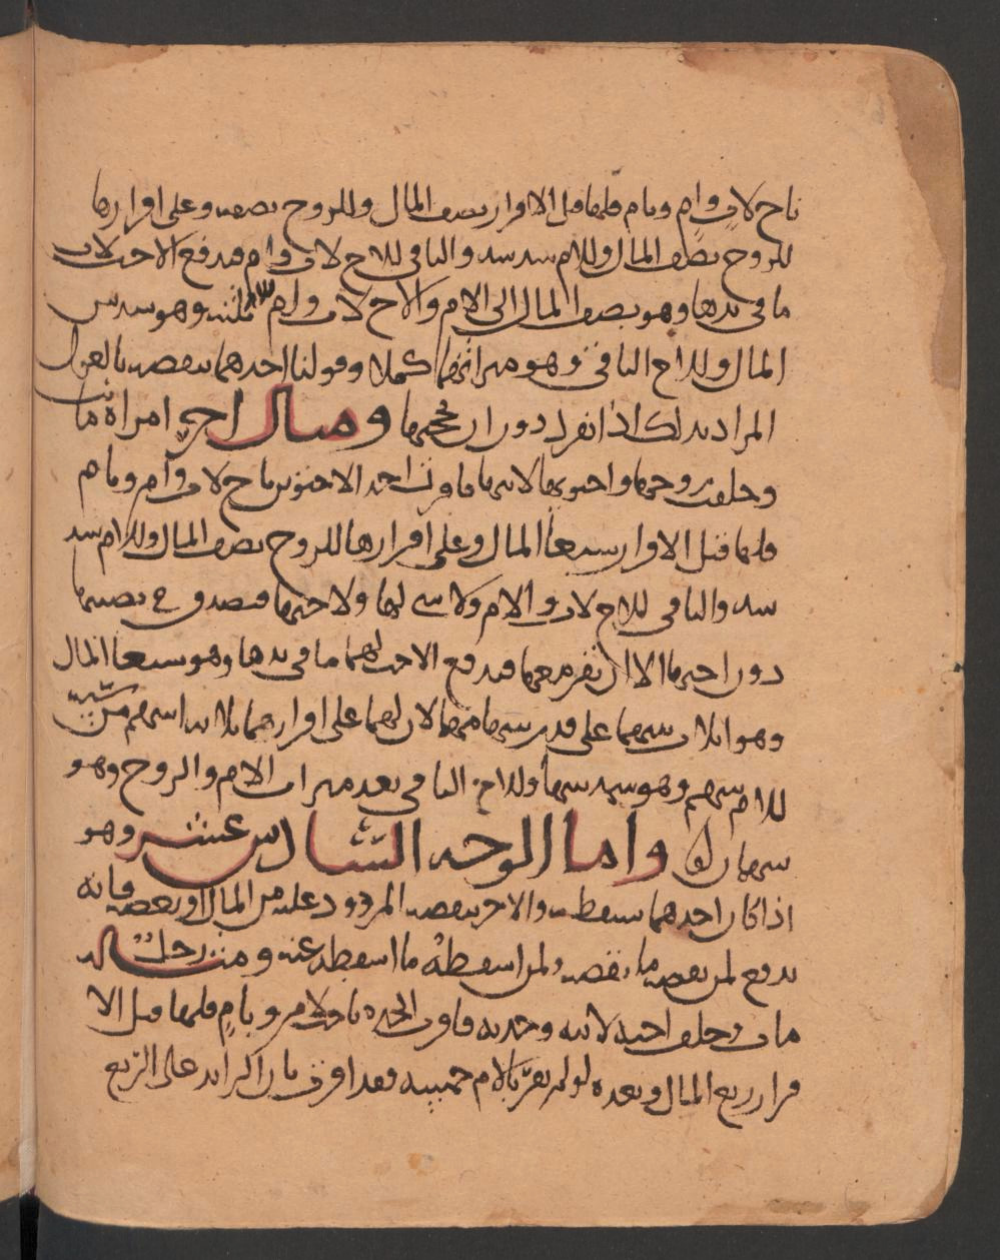 باخ لاب وام وبام فلها قبل الاقرار نصف المال وللزوج نصفه وعلى اقرارها
للزوج نصف المال وللام سدسه والباقي للاخ لاب وام فتدفع الاخت لاب
ما في يدها وهو نصف المال الى الام والاخ لاب وام ثلثه وهو سدس
المال وللاخ الباقي وهو ميراثهما كملا وقولنا احدهما ينقصه بالعول
المراد بذلك اذا انفرد دون ان يحجبها ومثال اخر امراة ماتت
وخلفت زوجها واختيها لابيها فاقرت احد الاختين باخ لاب وام وبام
فلها قبل الاقرار سبعا المال وعلى اقرارها للزوج نصف المال وللام سد
سه والباقي للاخ لاب والام ولا شي لها ولا ختها فتصدق في نصيبها
دون اختها الا ان تقر معها فتدفع الاخت لهما ما في يدها وهو سبعا المال
وهو اثلاث بينهما على قدر سهامهما لان لهما على اقرارهما ثلاثة اسهم من ستة
للام سهم وهو سدسها وللاخ الباقي بعد ميراث الام والزوج وهو
سهمان واما الوجه السادس عشر وهو
اذا كان احدهما يسقط والاخر ينقصه المردود عليه من المال او بعضه فانه
يدفع لمن نقصه ما نقصه ولمن اسقطه ما اسقط عنه ومثاله رجل
مات وخلف اخته لابيه وجدته فاقرت الجدة باخ لام وبام فلها قبل الا
قرار ربع المال وبعده لو لم تقر بالام خمسه فقد اقرت بان الزايد على الربع